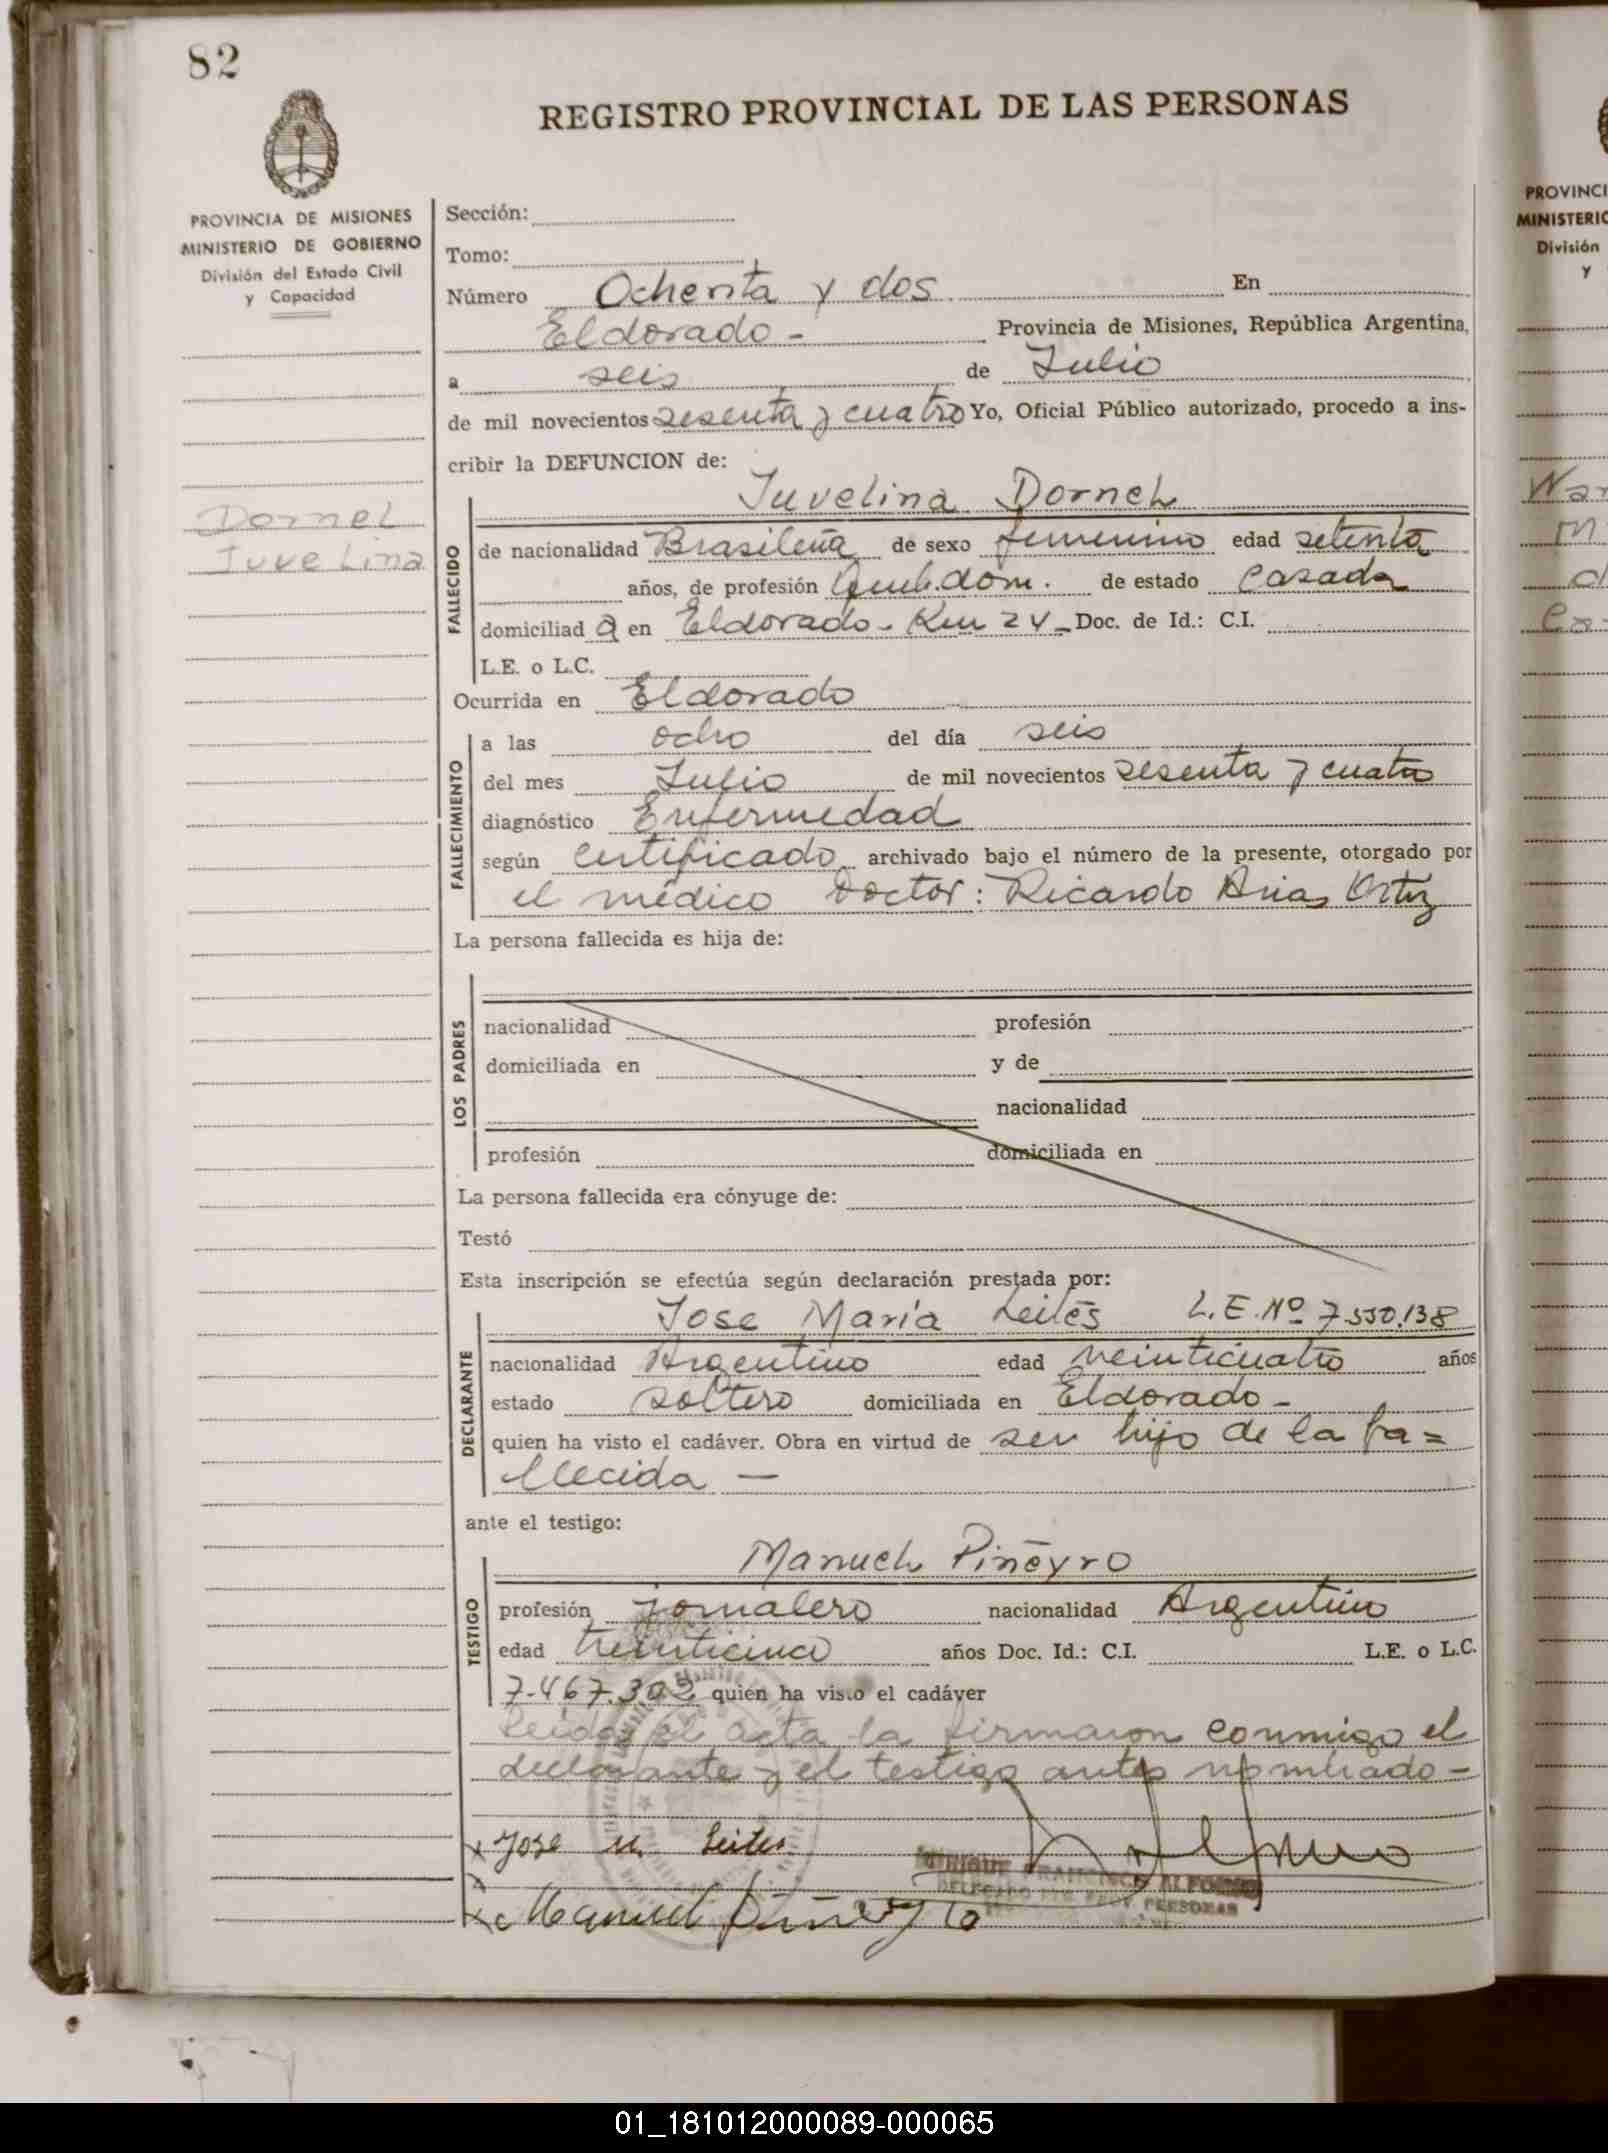 82
REGISTRO PROVINCIAL DE LAS PERSONAS
PROVINCIA DE MISIONES
MINISTERIO DE GOBIERNO
División del Estado Civil
y Capacidad
Dornel
Juvelina
Sección:
Tomo:
Número Ochenta y dos En
Eldorado - Provincia de Misiones, República Argentina,
a seis de Julio
de mil novecientos sesenta y cuatro Yo, Oficial Público autorizado, procedo a ins-
cribir la DEFUNCION de:
Juvelina Dornel
FALLECIDO
de nacionalidad Brasileña de sexo femenino edad setenta
años, de profesión Queh. dom. de estado casada
domiciliad a en Eldorado - Km 24 - Doc. de Id.: C.I.
L.E. o L.C.
Ocurrida en Eldorado
FALLECIMIENTO
a las ocho del día seis
del mes Julio de mil novecientos sesenta y cuatro
diagnóstico Enfermedad
según certificado archivado bajo el número de la presente, otorgado por
el médico Doctor: Ricardo Arias Ortiz
La persona fallecida es hija de:
LOS PADRES
nacionalidad profesión
domiciliada en y de
nacionalidad
profesión domiciliada en
La persona fallecida era cónyuge de:
Testó
Esta inscripción se efectúa según declaración prestada por:
DECLARANTE
Jose María Leites L.E. Nº 7.550.138
nacionalidad Argentino edad veinticuatro años
estado soltero domiciliada en Eldorado -
quien ha visto el cadáver. Obra en virtud de ser hijo de la fa=
llecida —
ante el testigo:
TESTIGO
Manuel Piñeyro
profesión jornalero nacionalidad Argentino
edad años Doc. Id.: C.I. L.E. o L.C.
7.467.302 quien ha visto el cadáver
Leída el acta la firmaron conmigo el
declarante y el testigo antes nombrado -
x Jose M. Leites
ENRIQUE FRANCISCO ALFONSO
x Manuel Piñeyro
PROVINCI
MINISTERIO
División
y
01_181012000089-000065